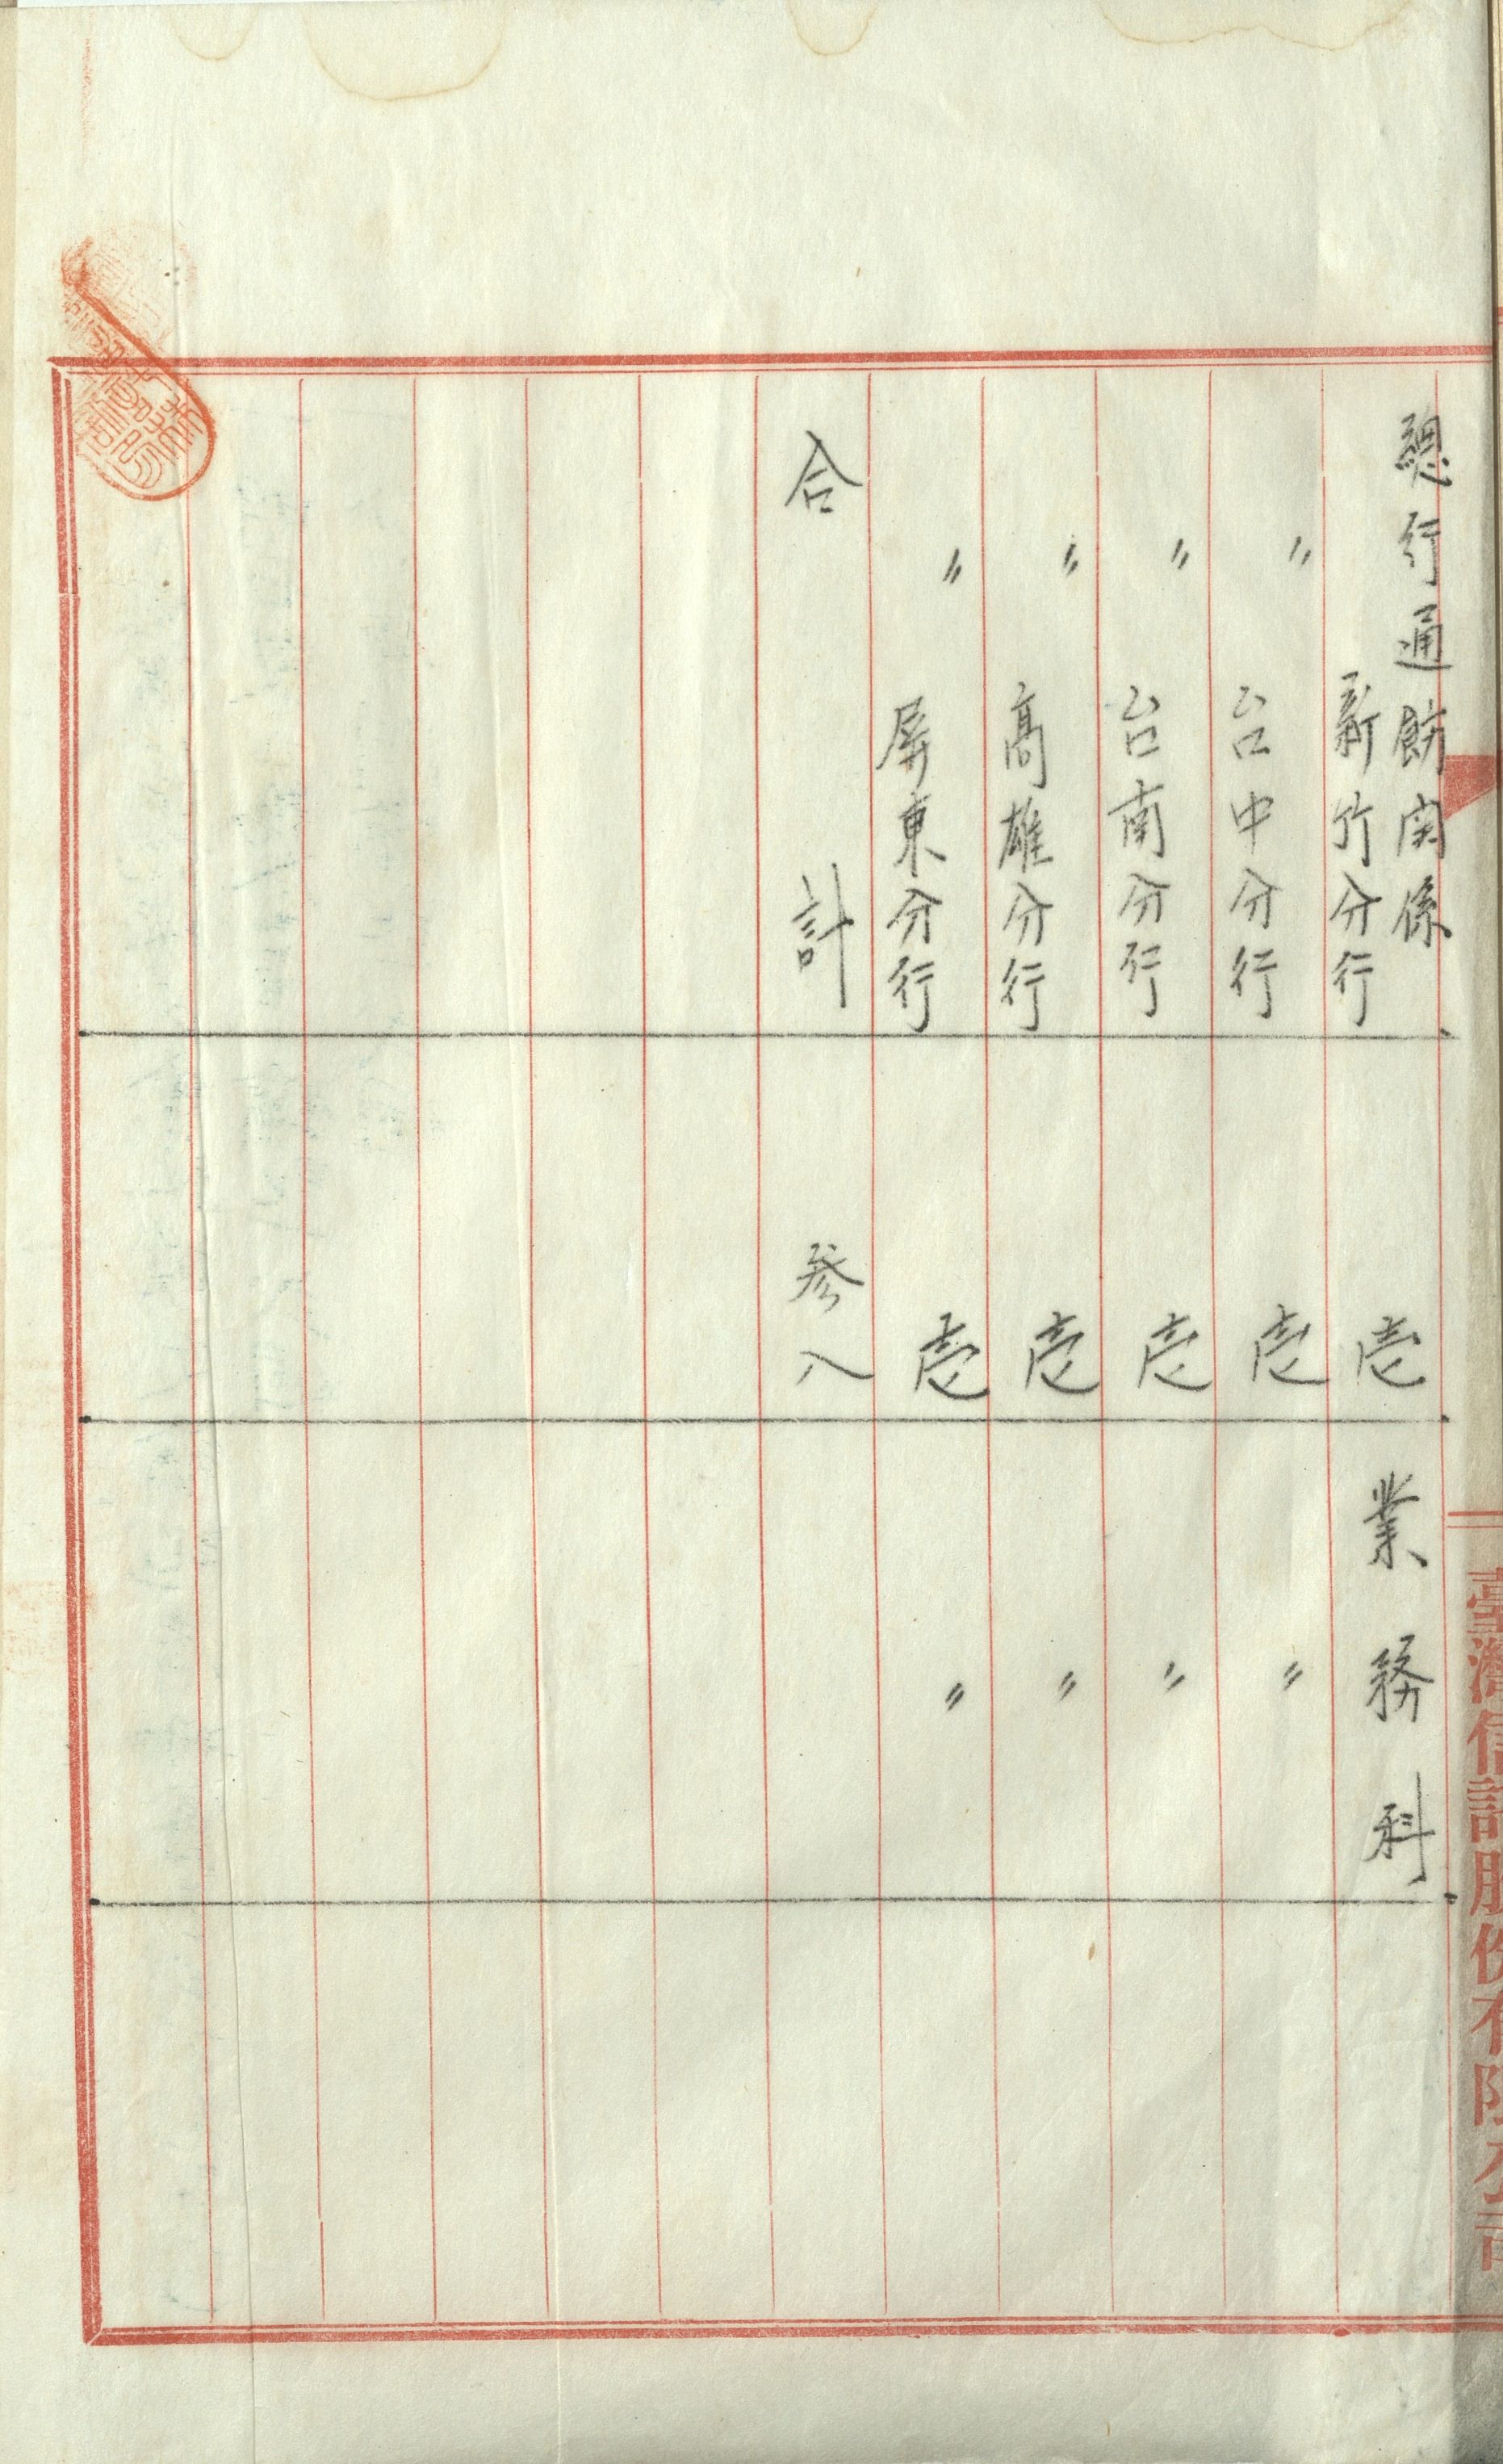 臺灣信託股份有限公司
總行通飭関係
新竹分行 壱 業務科
〃 台中分行 壱 〃
〃 台南分行 壱 〃
〃 高雄分行 壱 〃
〃 屏東分行 壱 〃
合計 参八